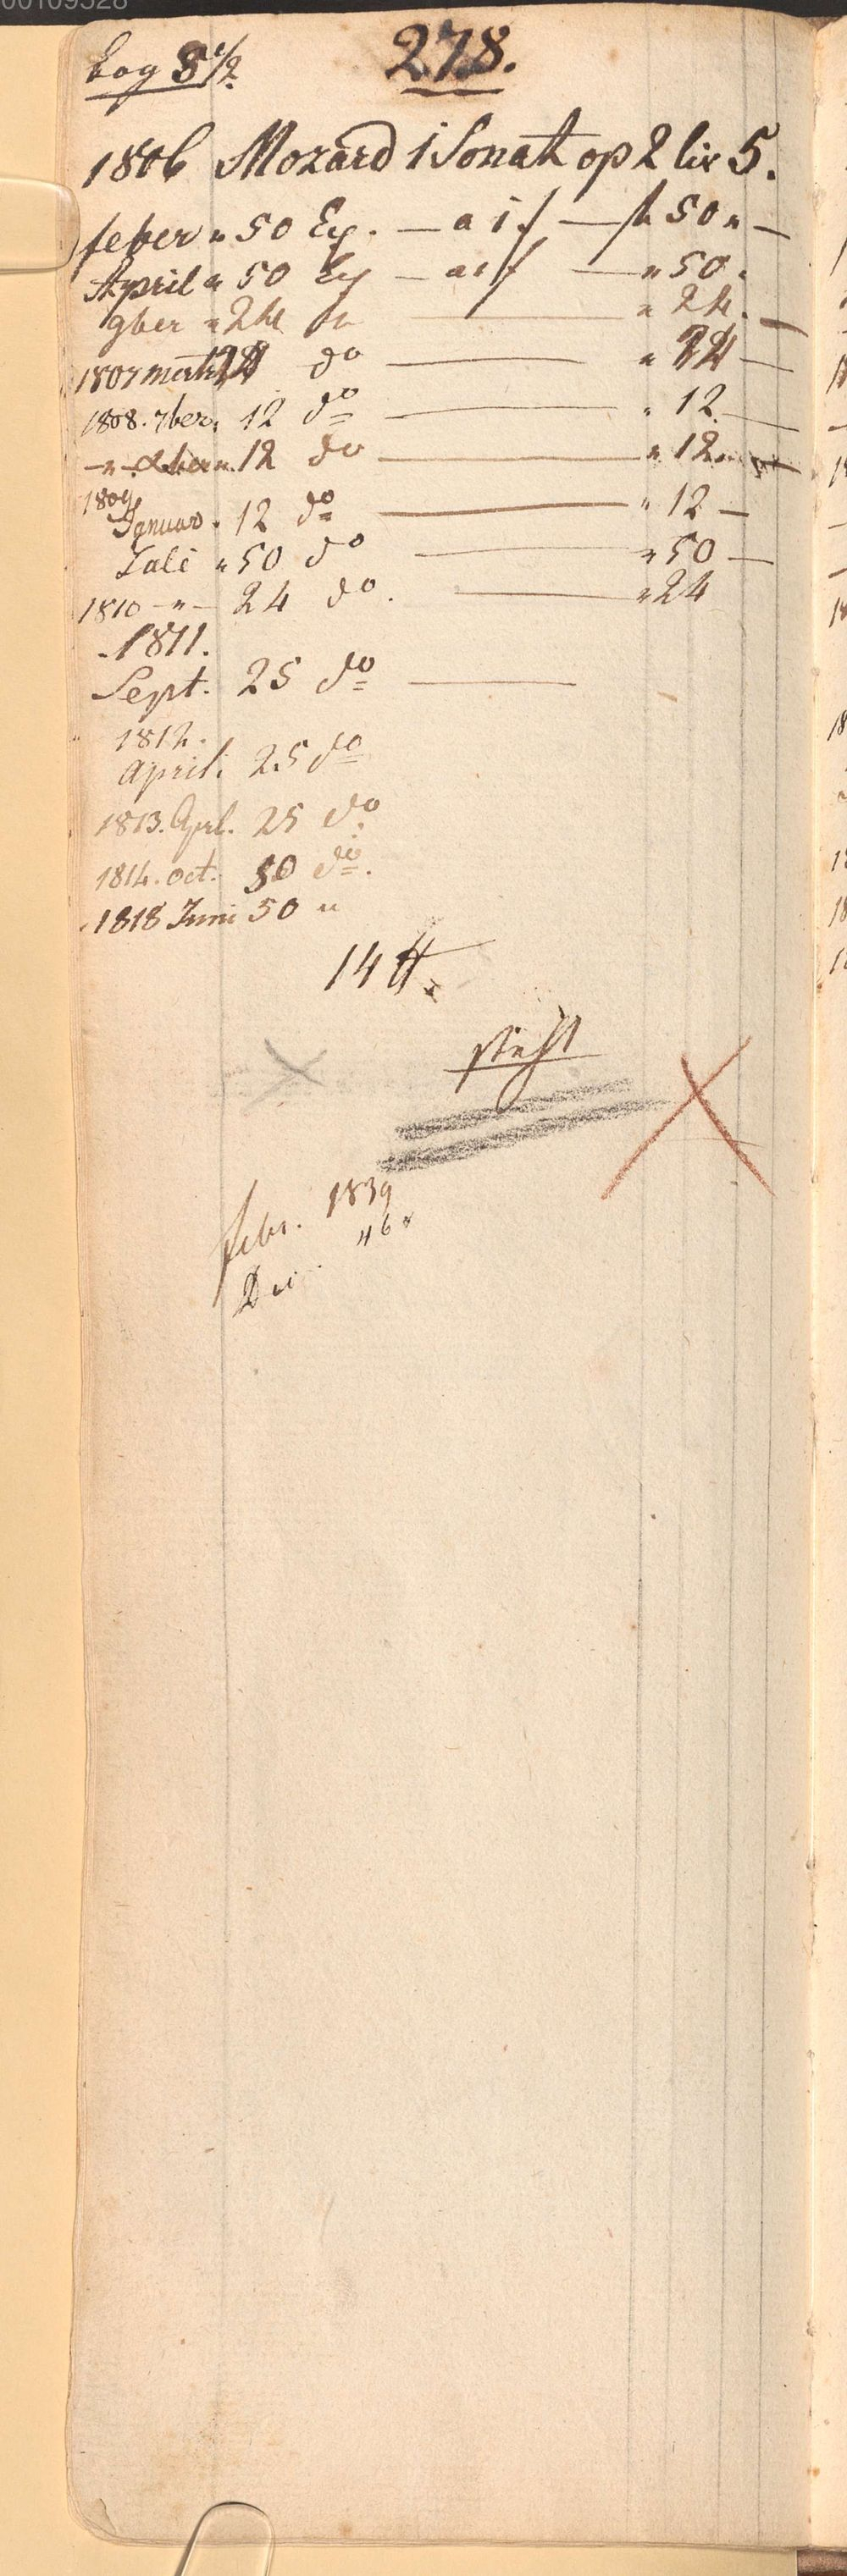 00109528
bog 8 1/2
278.
1806 Mozard 1 Sonat op 2 liv 5.
feber " 50 Ex. — a 1 f — fl 50 " —
April " 50 Ex — a 1 f — " 50 "
9ber " 24 — " 24. —
1807 do — "
1808. 7ber. 12 do — " 12. —
— " — 12 do — " 12 " —
1809
Januar " 12 do — " 12 —
Juli " 50 do — " 50 —
1810 — " — 24 do. — " 24
1811.
Sept. 25 do —
1812.
April. 25 do
1813. Aprl. 25 do.
1814. oct. 50 do.
1818 Juni 50 "
14 ℔.
steht
febr. 1839
" 46